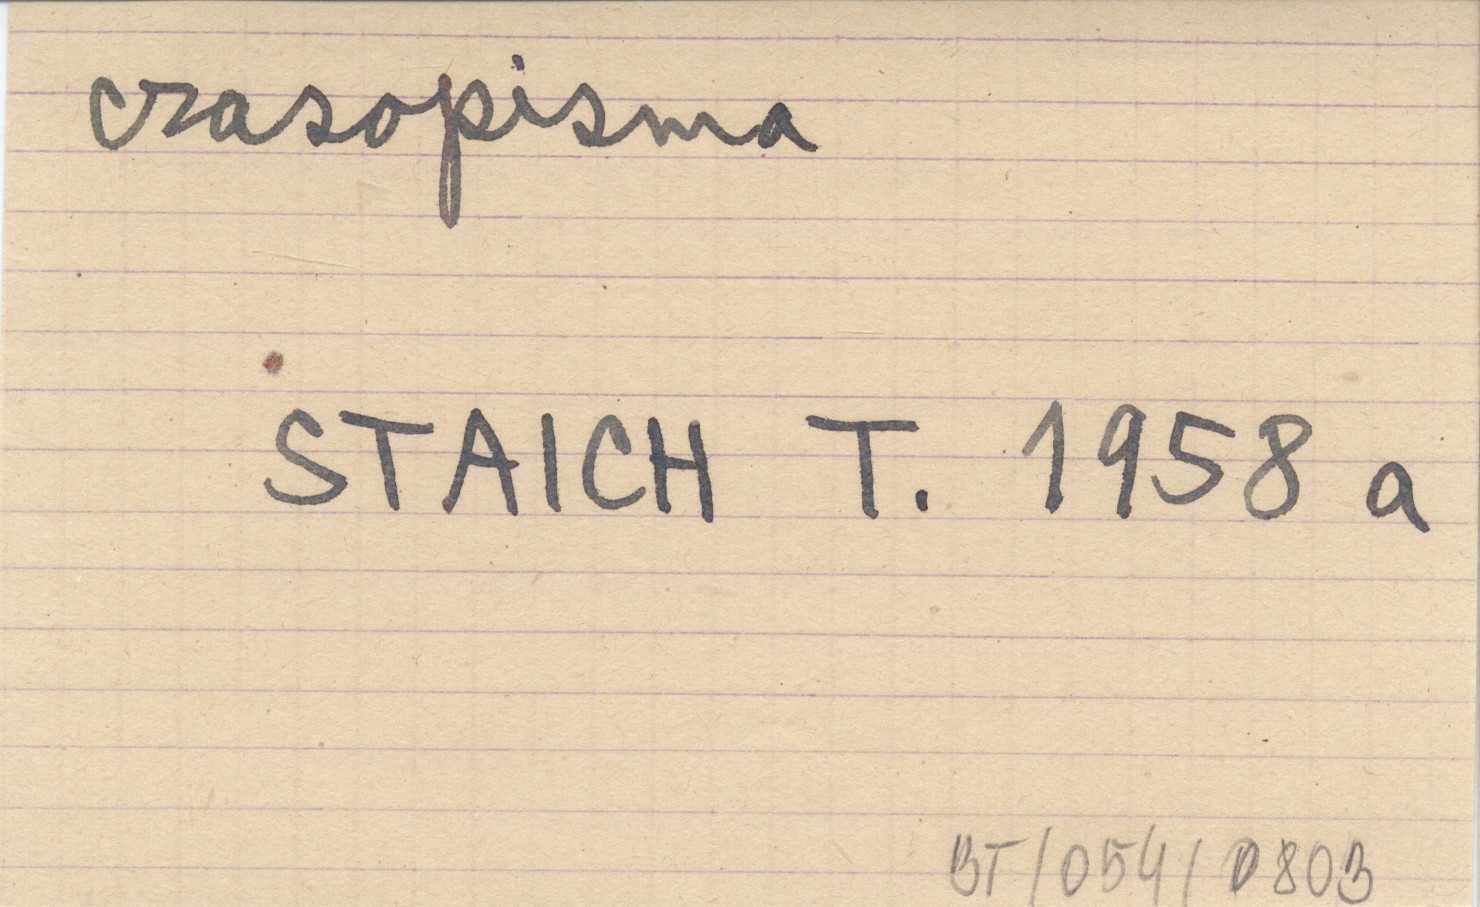 czasopisma
STAICH T. 1958 a
BT/054/0803